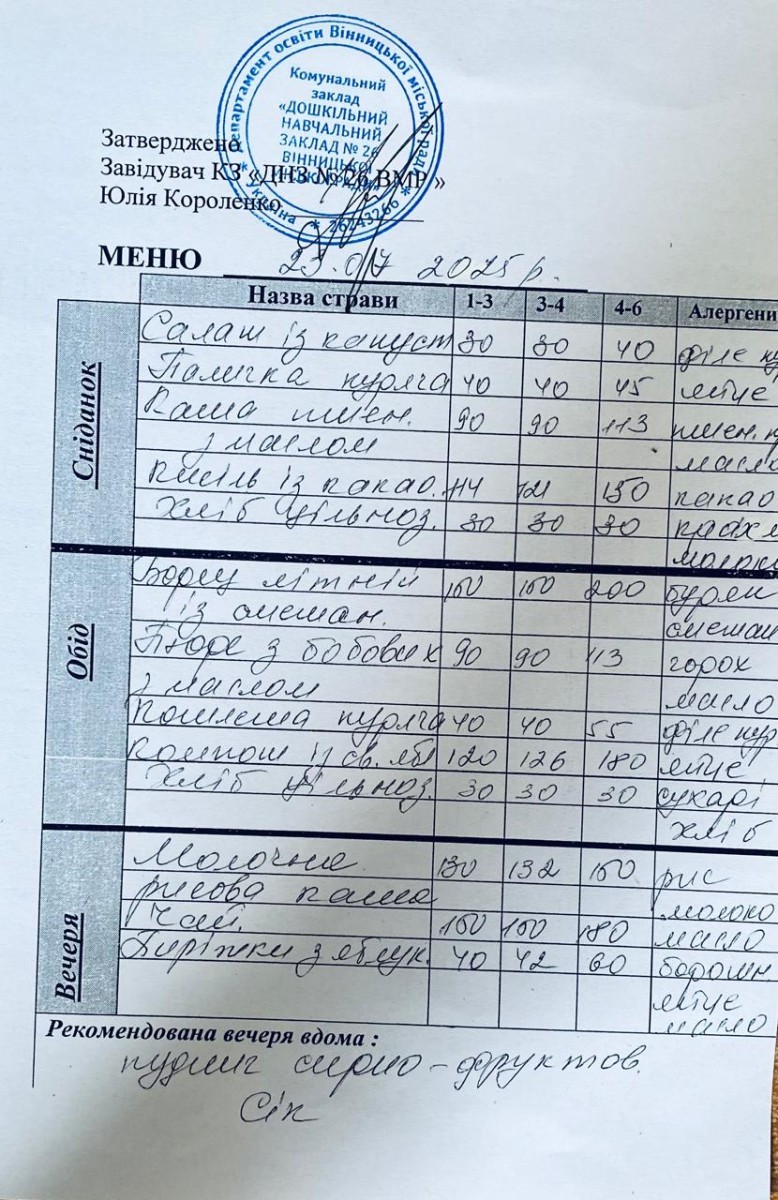 Департамент освіти Вінницької міської ради
* Україна * 26243266 *
Комунальний
заклад
«ДОШКІЛЬНИЙ
НАВЧАЛЬНИЙ
ЗАКЛАД № 26
ВІННИЦЬКОЇ
Затверджено
Завідувач КЗ «ДНЗ №26 ВМР »
Юлія Короленко
МЕНЮ 23.07 2025 р.
Назва страви 1-3 3-4 4-6 Алергени
Сніданок
Салат із капуст 30 30 40 філе кур
Паличка куряча 40 40 45 яйце
Каша пшен. 90 90 113 пшен. к
з маслом масло
Кисіль із какао. 114 121 150 какао
Хліб цільноз. 30 30 30 крохм
молоко
Обід
Борщ літній 150 150 200 буряк
із сметан. сметан
Пюре з бобових 90 90 113 горох
з маслом масло
Котлета куряча 40 40 55 філе кур
Компот із св. ябл 120 126 180 яйце
Хліб цільноз. 30 30 30 сухарі
хліб
Вечеря
Молочна 130 132 150 рис
рисова каша молоко
Чай. 150 150 180 масло
Пиріжки з яблук. 40 42 60 борошн.
яйце
масло
Рекомендована вечеря вдома :
пудинг сирно-фруктов.
Сік